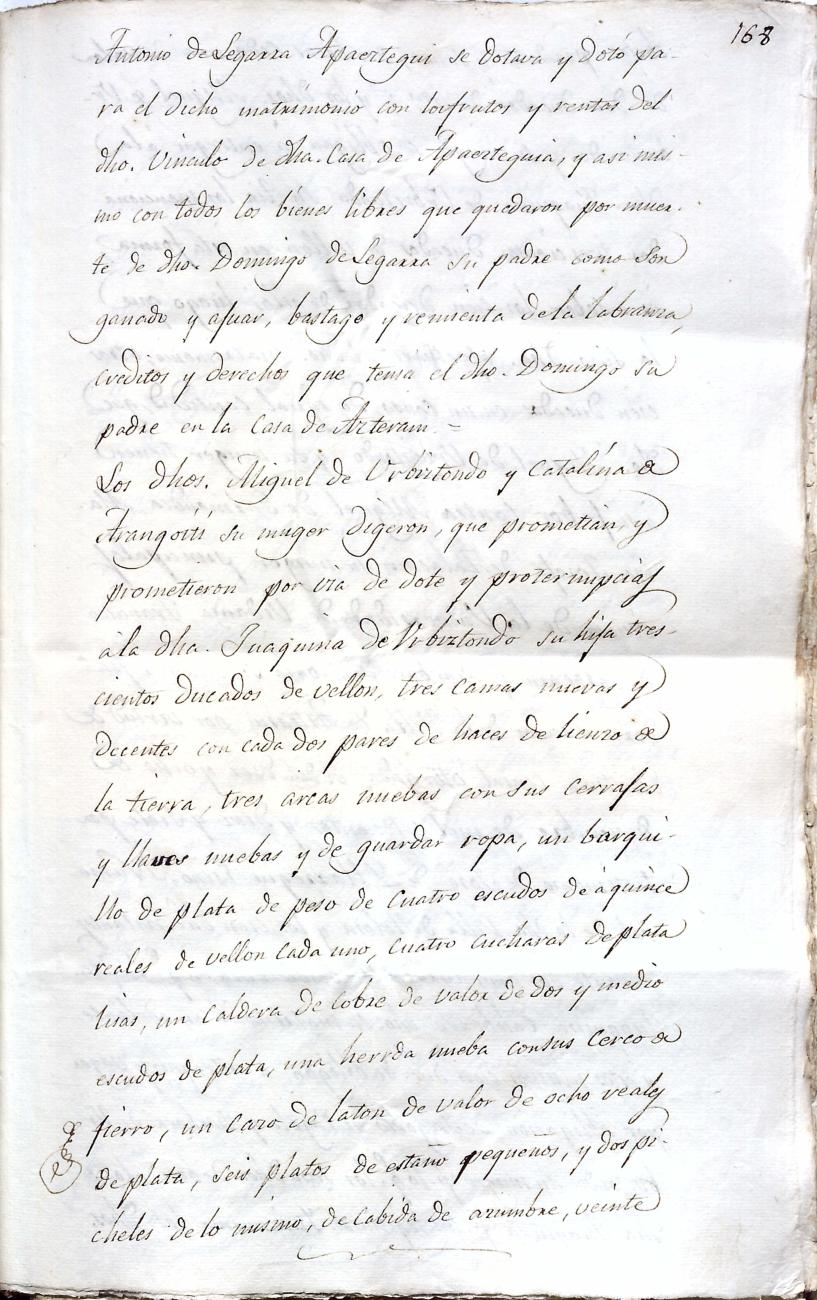 168
Antonio de Legarra Apaeztegui se dotava y dotó pa-
ra el dicho matrimonio con los frutos y rentas del
dho. Vinculo de dha. Casa de Apaezteguia, y asi mis-
mo con todos los bienes libres que quedaron por muer-
te de dho. Domingo de Legarra su padre como son
ganado y ajuar, bastago y remienta de la labranza,
creditos y derechos que tenia el dho. Domingo su
padre en la Casa de Azterain =
Los dhos. Miguel de Urbiztondo y Catalina de
Arangoiti su muger digeron, que prometian, y
prometieron por via de dote y propternupcias
á la dha. Juaquina de Urbiztondo su hija tres-
cientos Ducados de vellon, tres camas nuevas y
decentes con cada dos pares de haces de lienzo de
la tierra, tres arcas nuebas con sus Cerrajas
y llaves nuebas y de guardar ropa, un barqui-
llo de plata de peso de Cuatro escudos de á quince
reales de vellon cada uno, Cuatro cucharas de plata
lisas, un Caldera de Cobre de valor de dos y medio
escudos de plata, una herrda nueba con sus Cerco de
fierro, un Cazo de laton de valor de ocho reales
de plata, seis platos de estaño pequeños, y dos pi-
cheles de lo mismo, de Cabida de azumbre, veinte